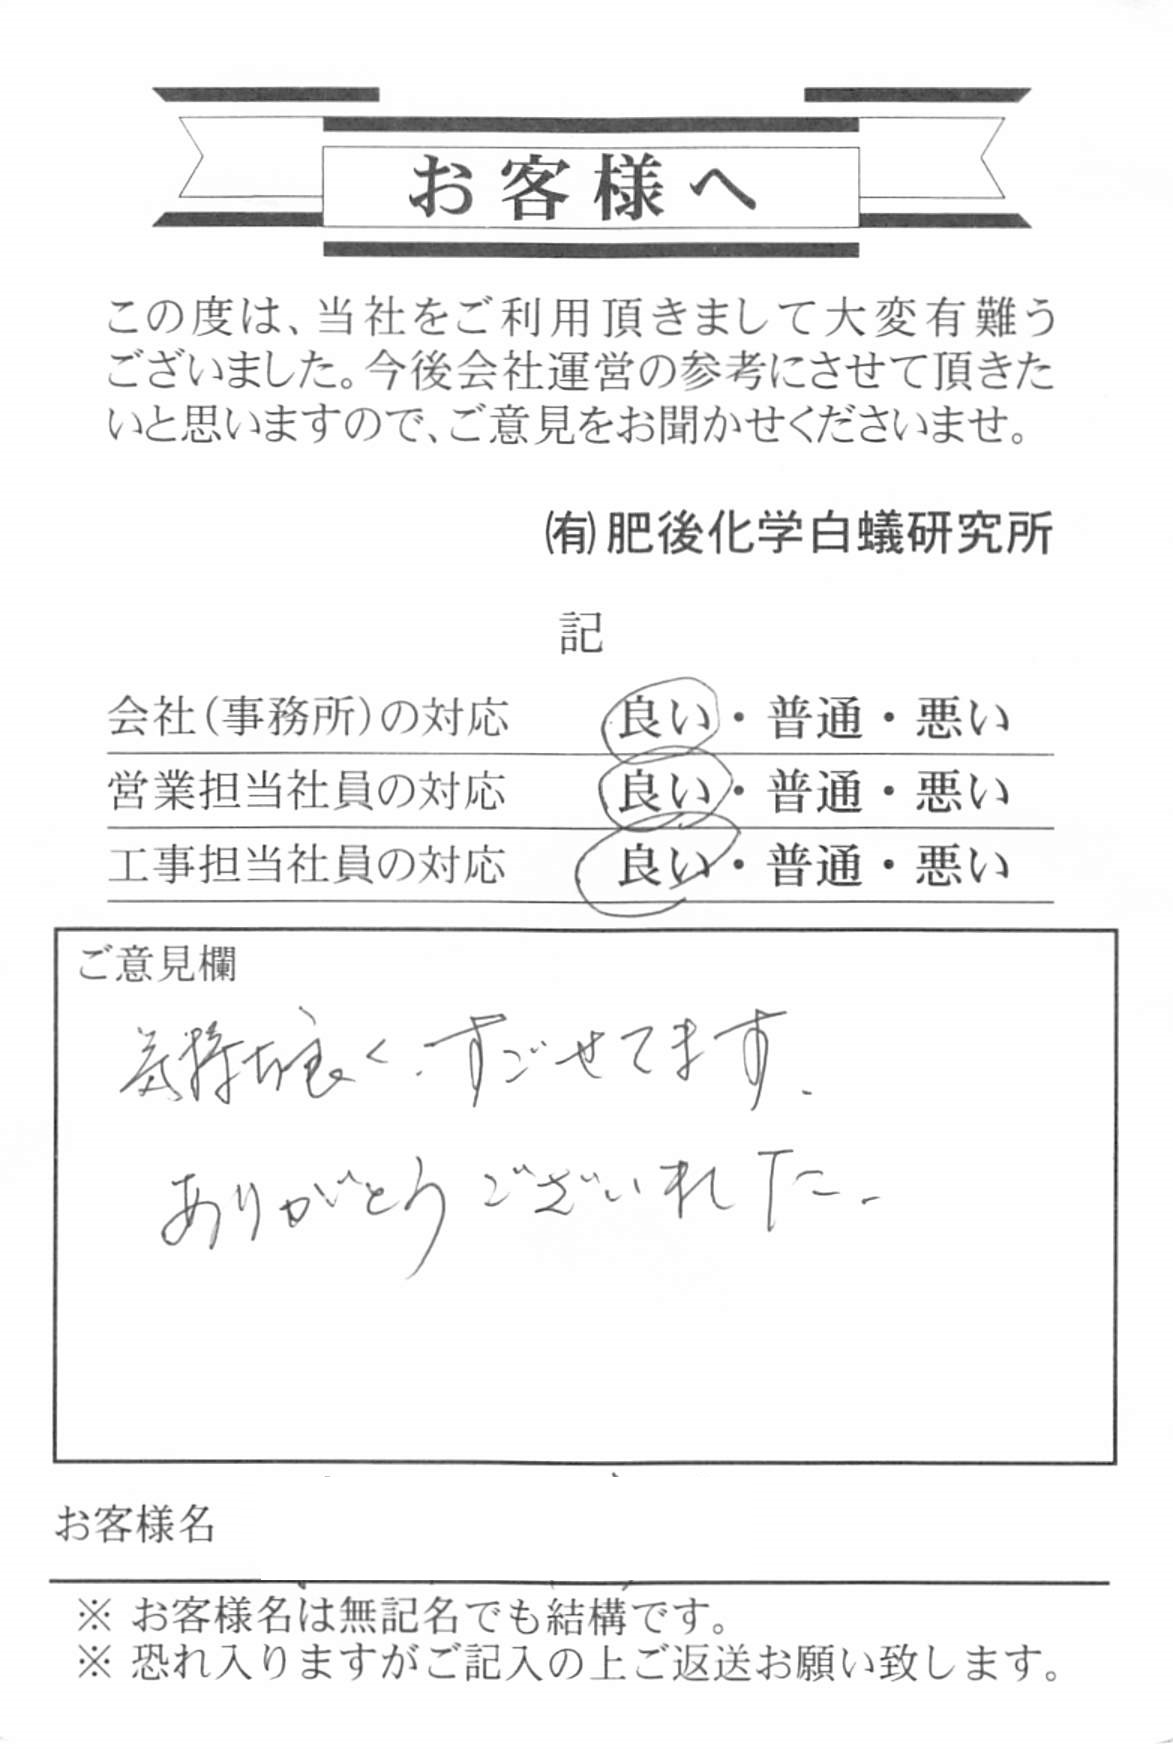 お客様へ
この度は、当社をご利用頂きまして大変有難う
ございました。今後会社運営の参考にさせて頂きた
いと思いますので、ご意見をお聞かせくださいませ。
㈲肥後化学白蟻研究所
記
会社(事務所)の対応 良い・普通・悪い
営業担当社員の対応 良い・普通・悪い
工事担当社員の対応 良い・普通・悪い
ご意見欄
気持ち良く、すごせてます。
ありがとうございました。
お客様名
※ お客様名は無記名でも結構です。
※ 恐れ入りますがご記入の上ご返送お願い致します。